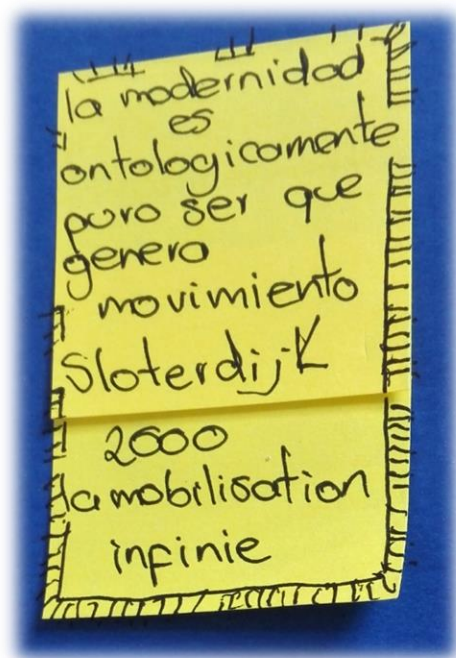 la modernidad
es
ontologicamente
puro ser que
genera
movimiento
Sloterdijk
2000
la mobilisation
infinie